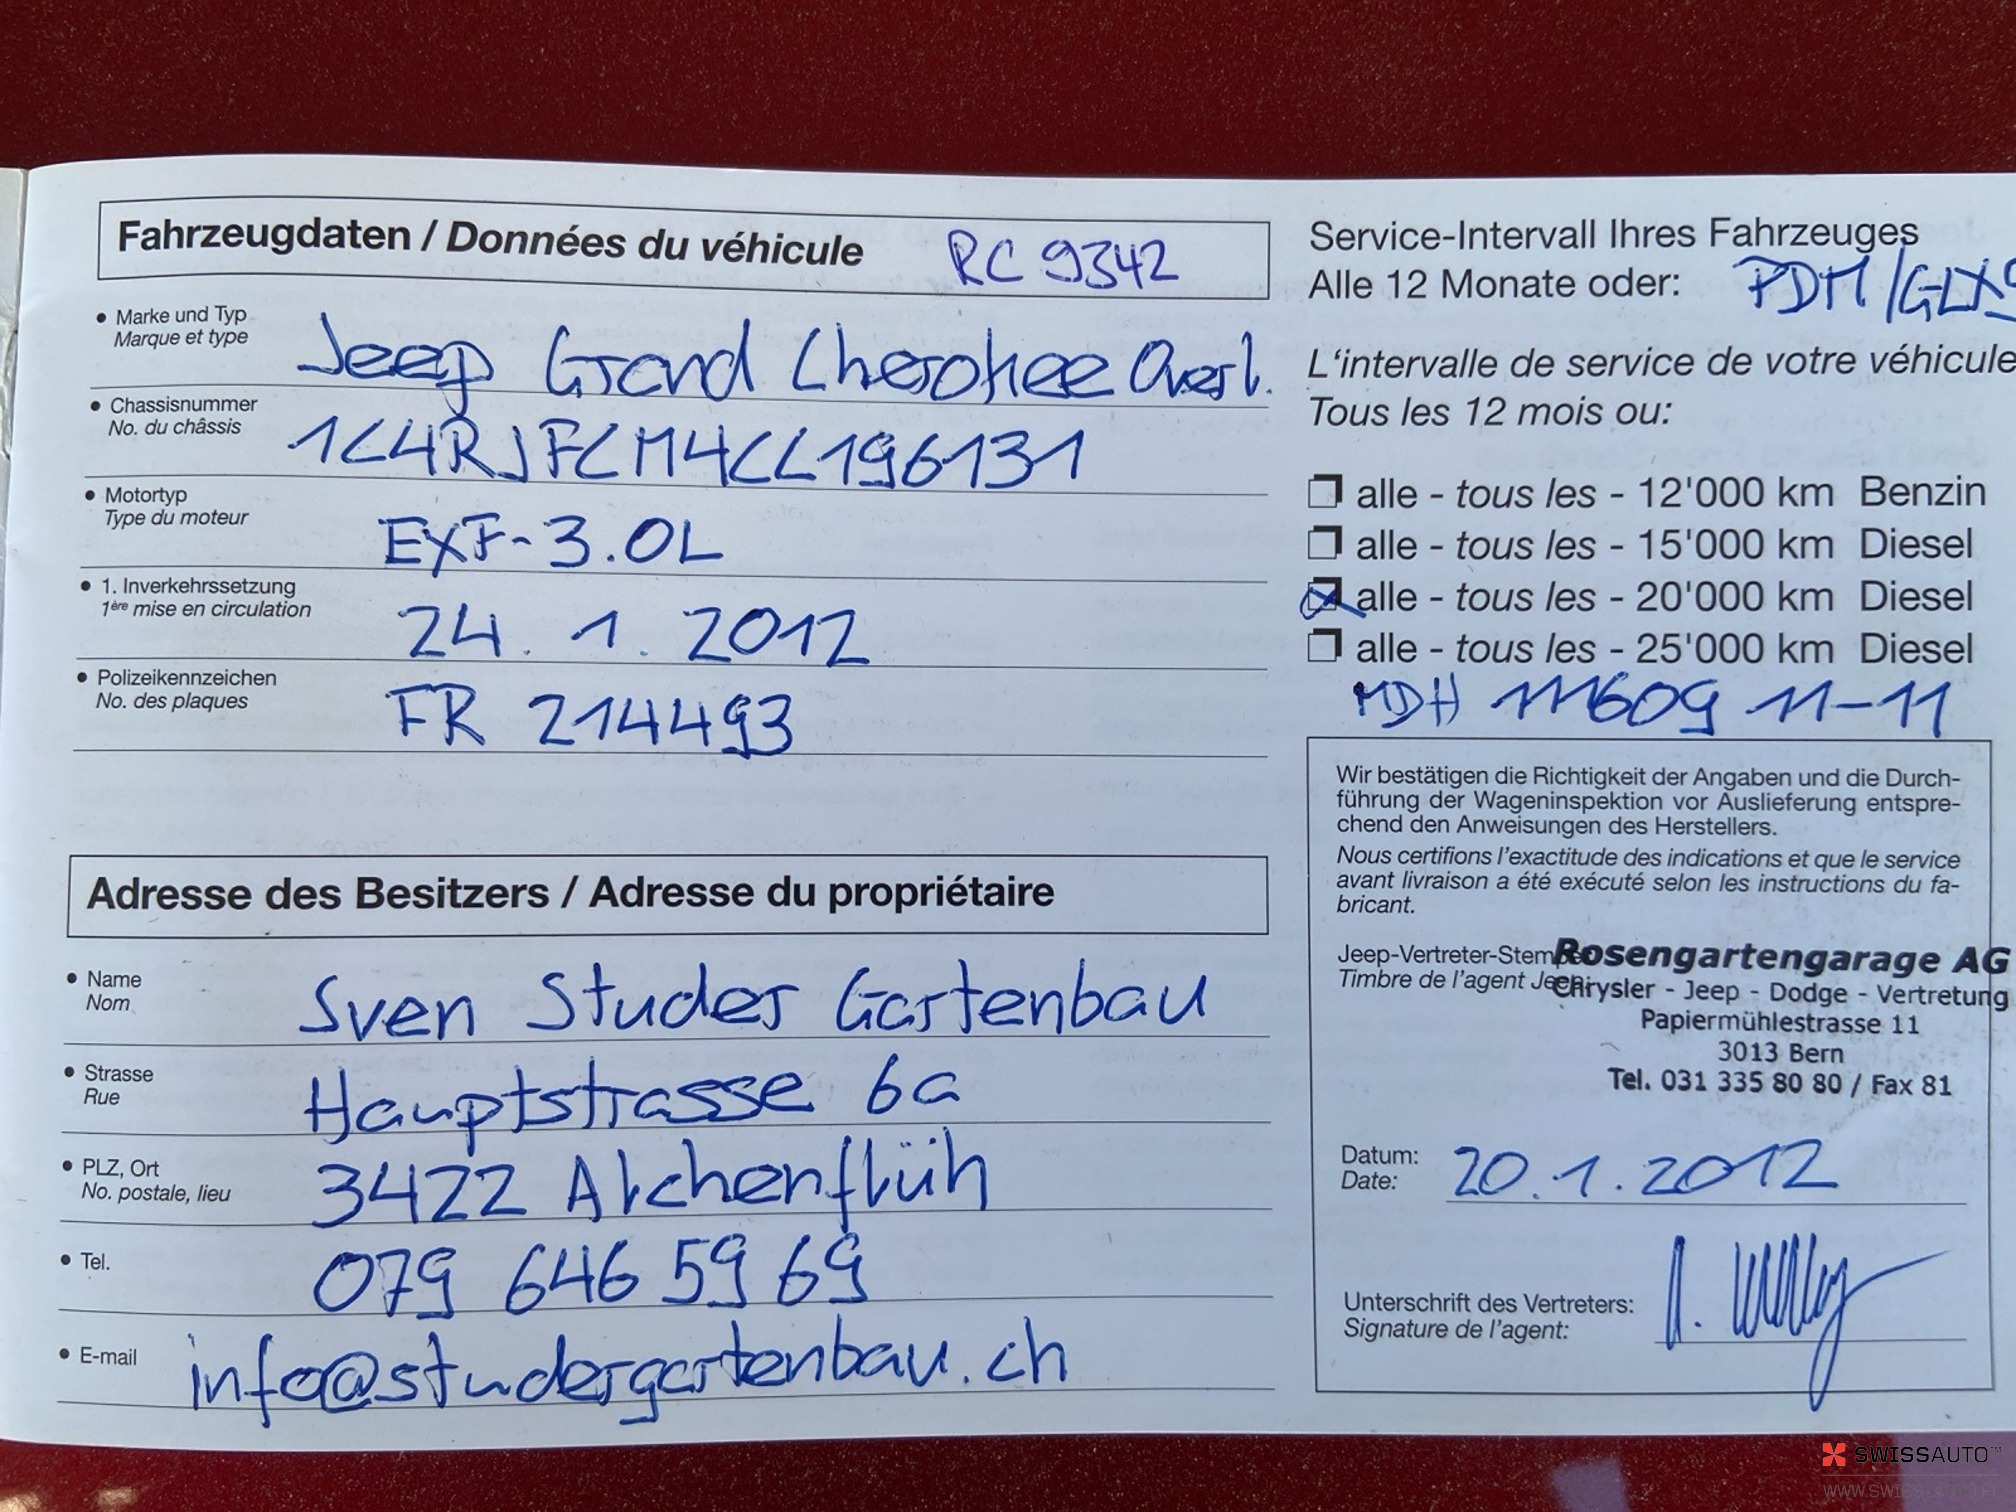 Fahrzeugdaten / Données du véhicule RC 9342
Marke und Typ
Marque et type
Jeep Grand Cherokee Overl.
Chassisnummer
No. du châssis
1C4RJFCM4CC196131
Motortyp
Type du moteur
EXF-3.0L
1. Inverkehrssetzung
1ère mise en circulation
24. 1. 2012
Polizeikennzeichen
No. des plaques
FR 214493
Adresse des Besitzers / Adresse du propriétaire
Name
Nom
Sven Studer Gartenbau
Strasse
Rue
Hauptstrasse 6a
PLZ, Ort
No. postale, lieu
3422 Alchenflüh
Tel.
079 646 59 69
E-mail
info@studergartenbau.ch
Service-Intervall Ihres Fahrzeuges
Alle 12 Monate oder: PDM/GLX
L'intervalle de service de votre véhicule
Tous les 12 mois ou:
alle - tous les - 12'000 km Benzin
alle - tous les - 15'000 km Diesel
alle - tous les - 20'000 km Diesel
alle - tous les - 25'000 km Diesel
MDH 111609 11-11
Wir bestätigen die Richtigkeit der Angaben und die Durch-
führung der Wageninspektion vor Auslieferung entspre-
chend den Anweisungen des Herstellers.
Nous certifions l'exactitude des indications et que le service
avant livraison a été exécuté selon les instructions du fa-
bricant.
Jeep-Vertreter-Stempel
Timbre de l'agent Jeep
Rosengartengarage AG
Chrysler - Jeep - Dodge - Vertretung
Papiermühlestrasse 11
3013 Bern
Tel. 031 335 80 80 / Fax 81
Datum:
Date:
20.1.2012
Unterschrift des Vertreters:
Signature de l'agent:
SWISSAUTO™